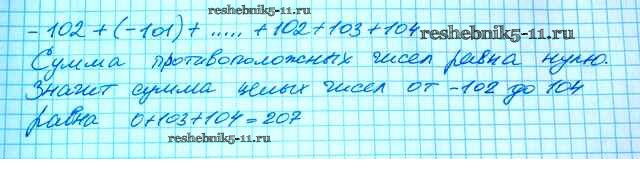 reshebnik5-11.ru
-102+(-101)+.....+102+103+104
reshebnik5-11.ru
Сумма противоположных чисел равна нулю.
Значит сумма целых чисел от -102 до 104
равна 0+103+104=207
reshebnik5-11.ru